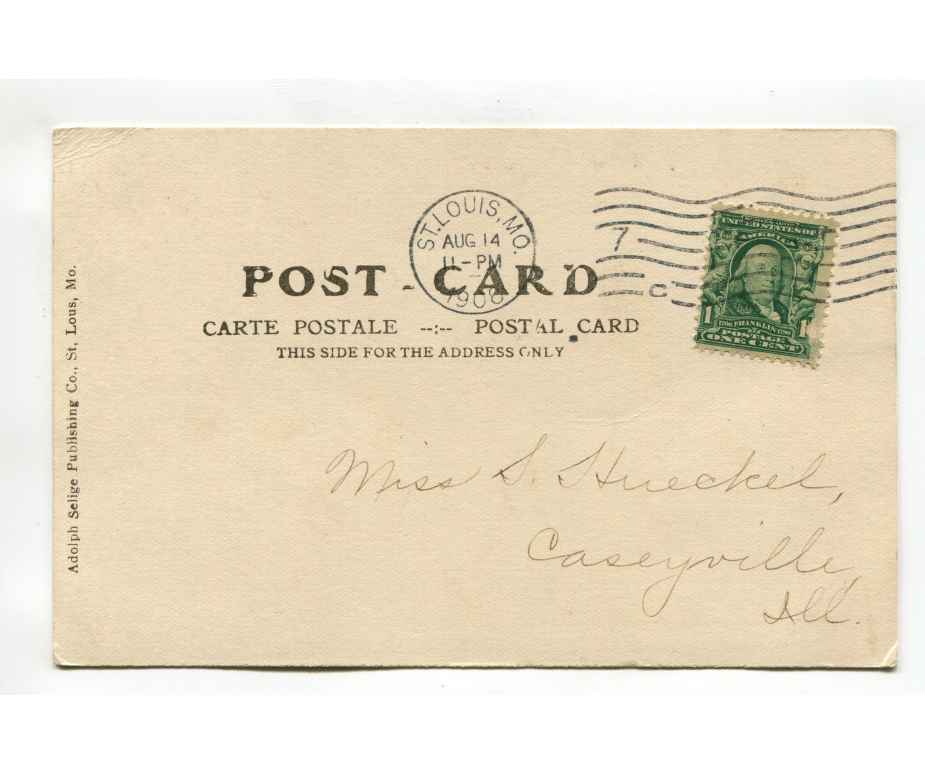 ST. LOUIS, MO.
AUG 14
11-PM
1908
7
C
UNITED STATES OF
AMERICA
1706 FRANKLIN 1790
1 1
POSTAGE
ONE CENT
POST - CARD
CARTE POSTALE --:-- POSTAL CARD
THIS SIDE FOR THE ADDRESS ONLY
Miss S. Hueckel,
Caseyville,
Ill.
Adolph Selige Publishing Co., St, Lous, Mo.